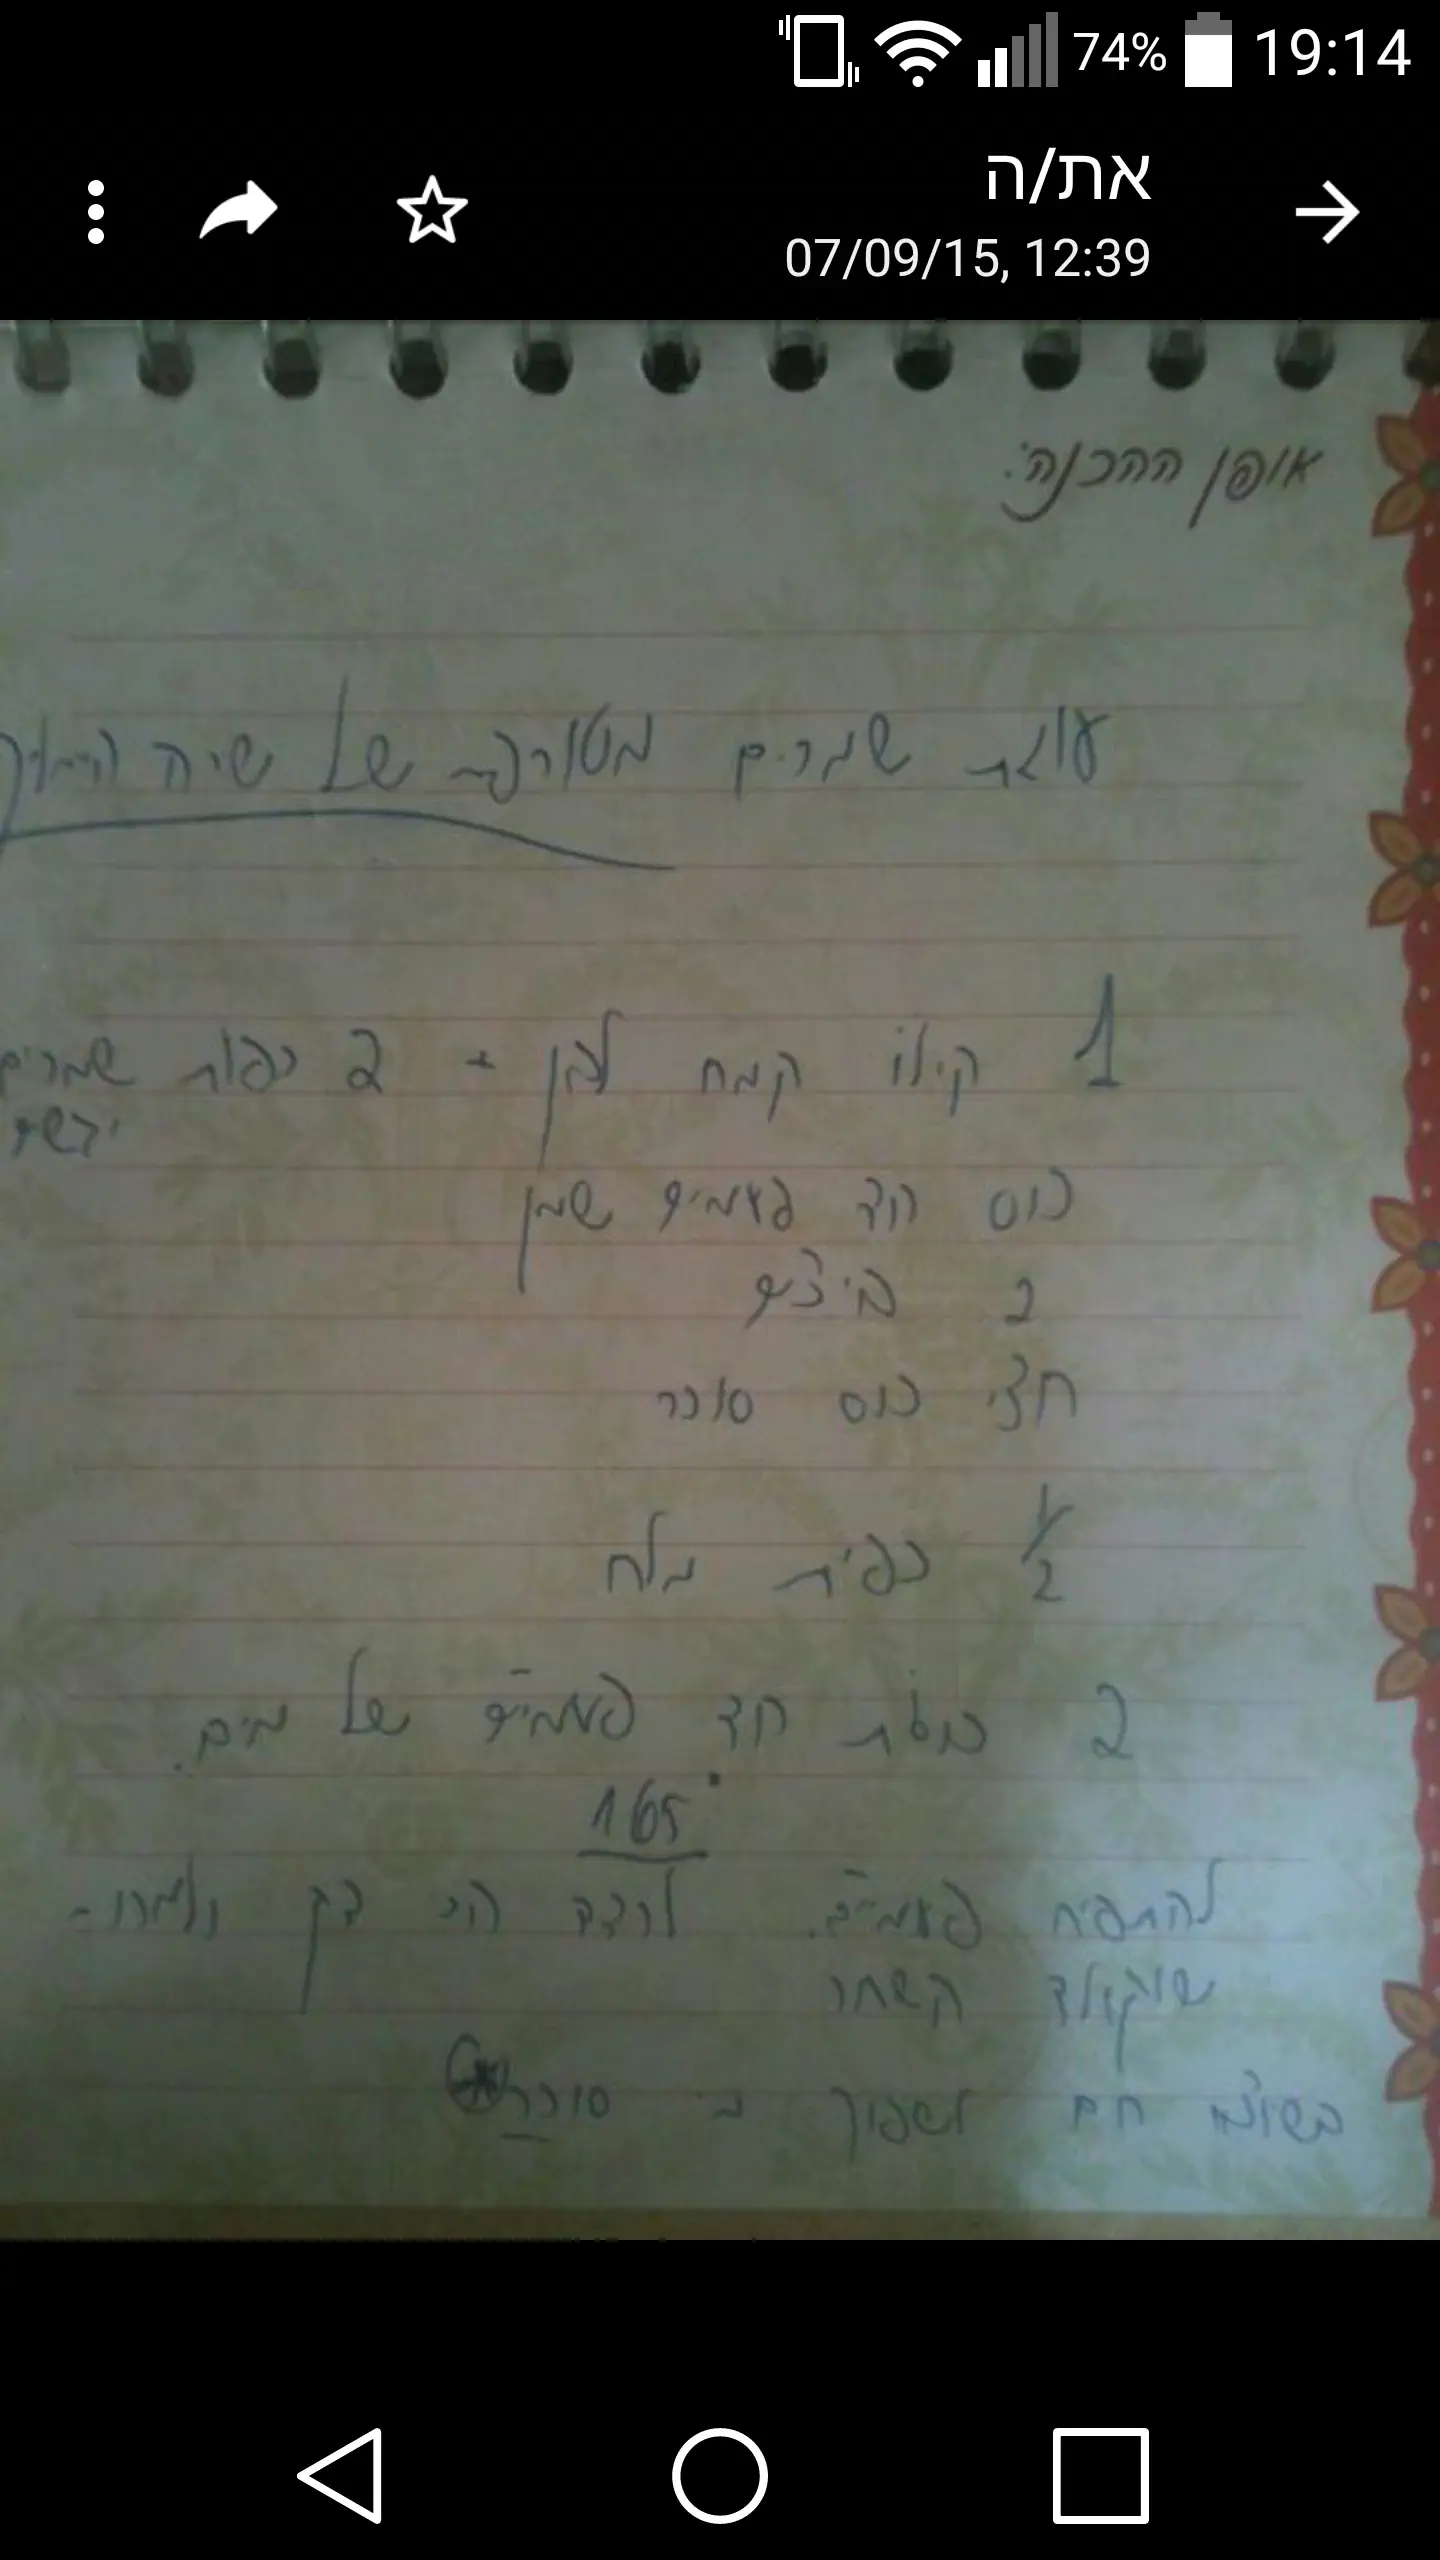 74% 19:14
את/ה
07/09/15, 12:39
אופן ההכנה:
עוגת שמרים מטורפת של שיה
1 קילו קמח לבן + 2 כפות שמרים
יבשים
כוס חד פעמית שמן
2 ביצים
חצי כוס סוכר
1/2 כפית מלח
2 כוסות חד פעמיים של מים.
165°
להתפיח פעמיים. לרדד הכי דק ולמרוח
שוקולד השחר
כשיוצא חם לשפוך מי סוכר